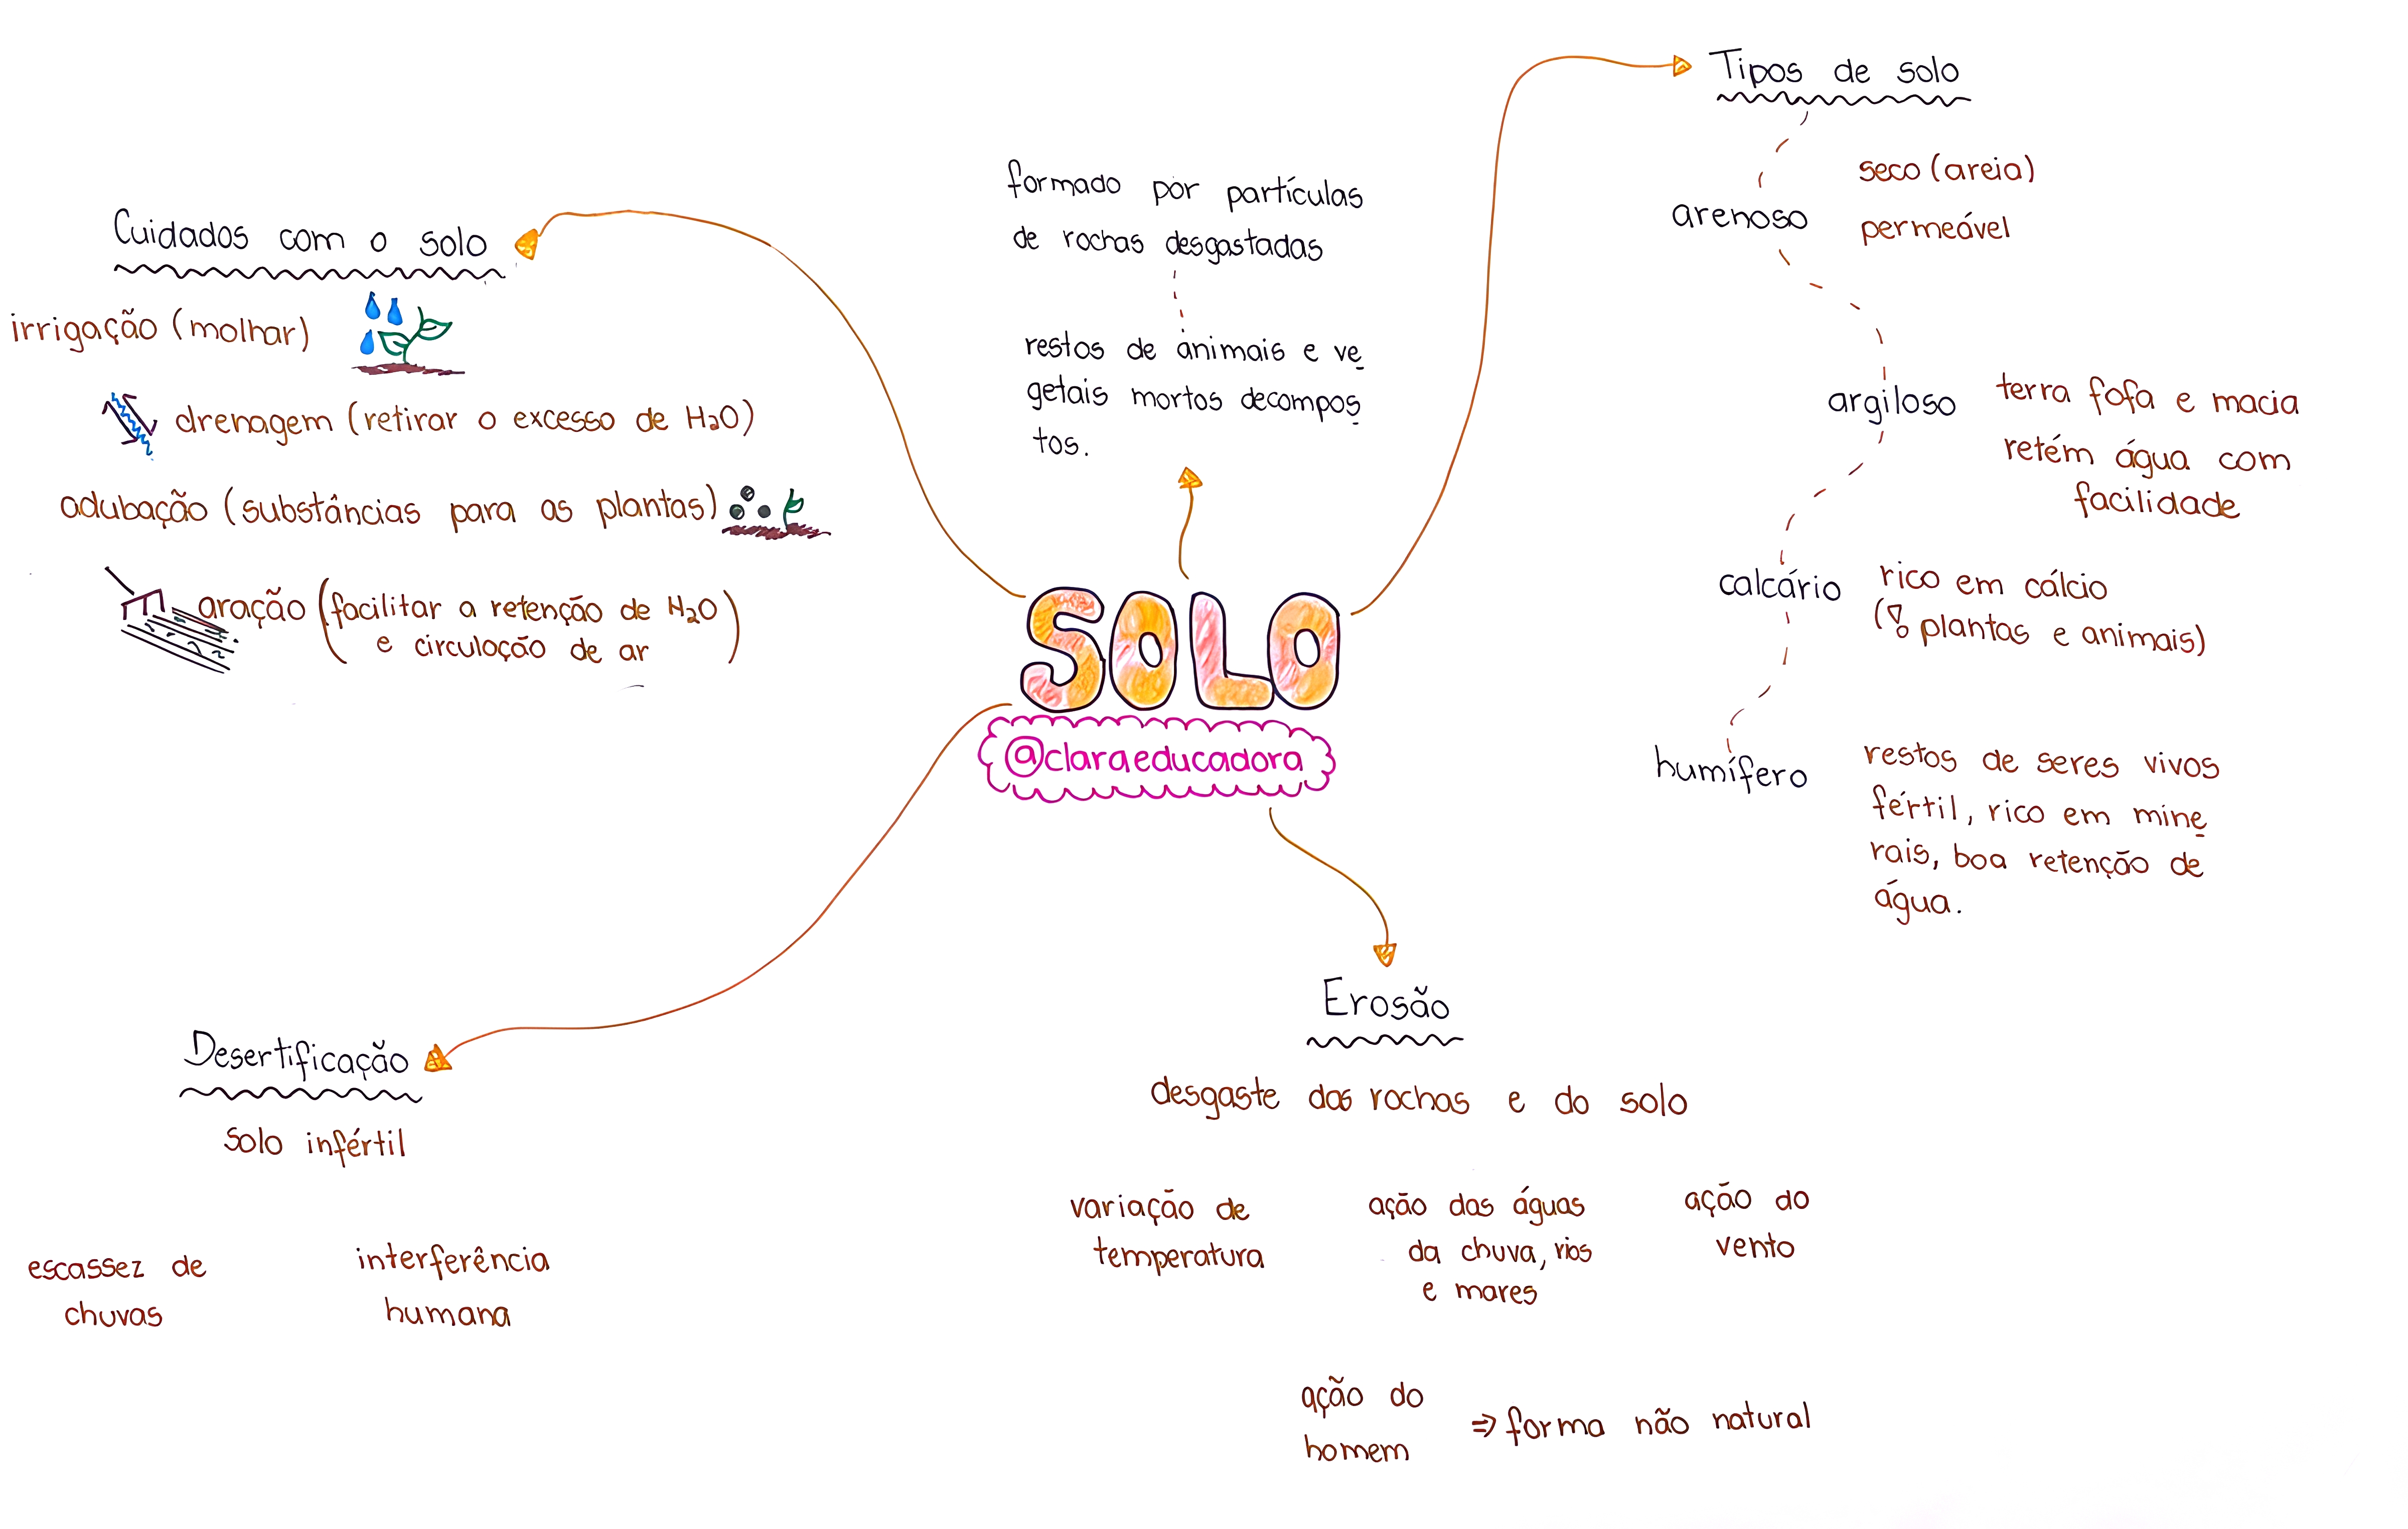 Cuidados com o solo
irrigação (molhar)
drenagem (retirar o excesso de H2O)
adubação (substâncias para as plantas)
aração (facilitar a retenção de H2O
e circulação de ar)
formado por partículas
de rochas desgastadas
restos de animais e ve
getais mortos decompos
tos.
Tipos de solo
arenoso
seco (areia)
permeável
argiloso
terra fofa e macia
retém água com
facilidade
calcário
rico em cálcio
(! plantas e animais)
humífero
restos de seres vivos
fértil, rico em mine
rais, boa retenção de
água.
SOLO
@claraeducadora
Desertificação
solo infértil
escassez de
chuvas
interferência
humana
Erosão
desgaste das rochas e do solo
variação de
temperatura
ação das águas
da chuva, rios
e mares
ação do
vento
ação do
homem
⇒ forma não natural